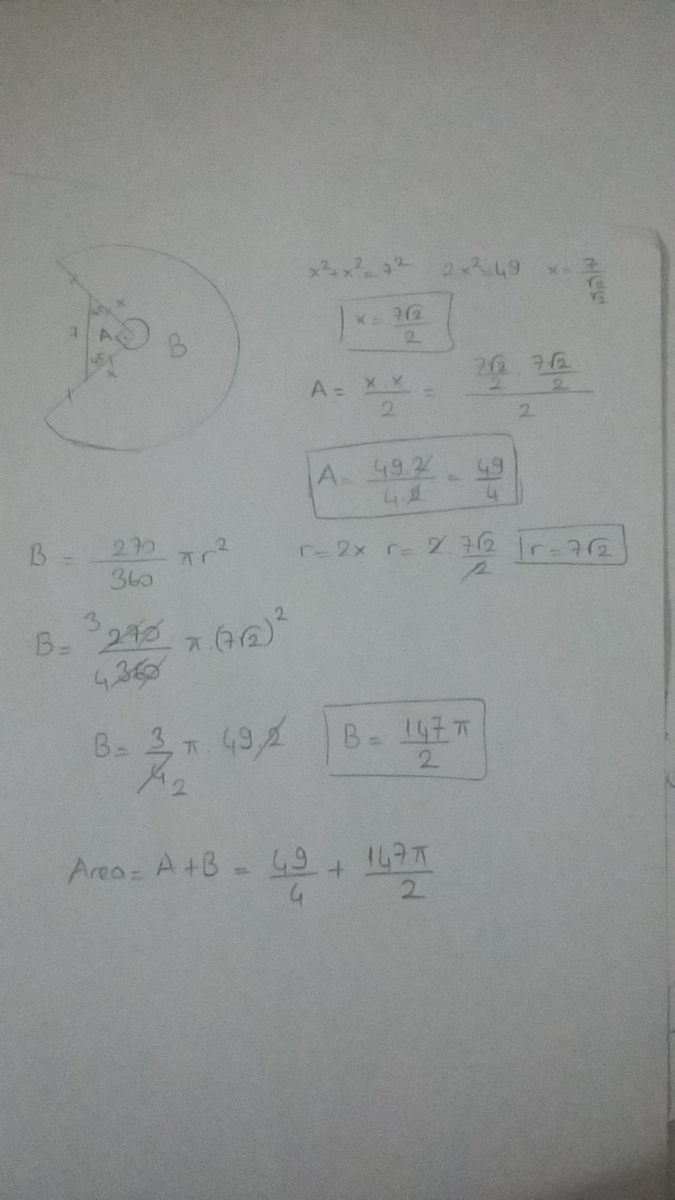 x
45
7
A
B
45
x
x²+x²=7² 2x²=49 x=7/√2
√2
x = 7√2/2
A = x x/2 = (7√2/2 · 7√2/2)/2
A = 49.2/4.2 = 49/4
B = 270/360 πr² r=2x r=2 · 7√2/2 r=7√2
B = 3 270/4 360 π.(7√2)²
B = 3/4 2 π. 49.2 B = 147π/2
Area = A+B = 49/4 + 147π/2